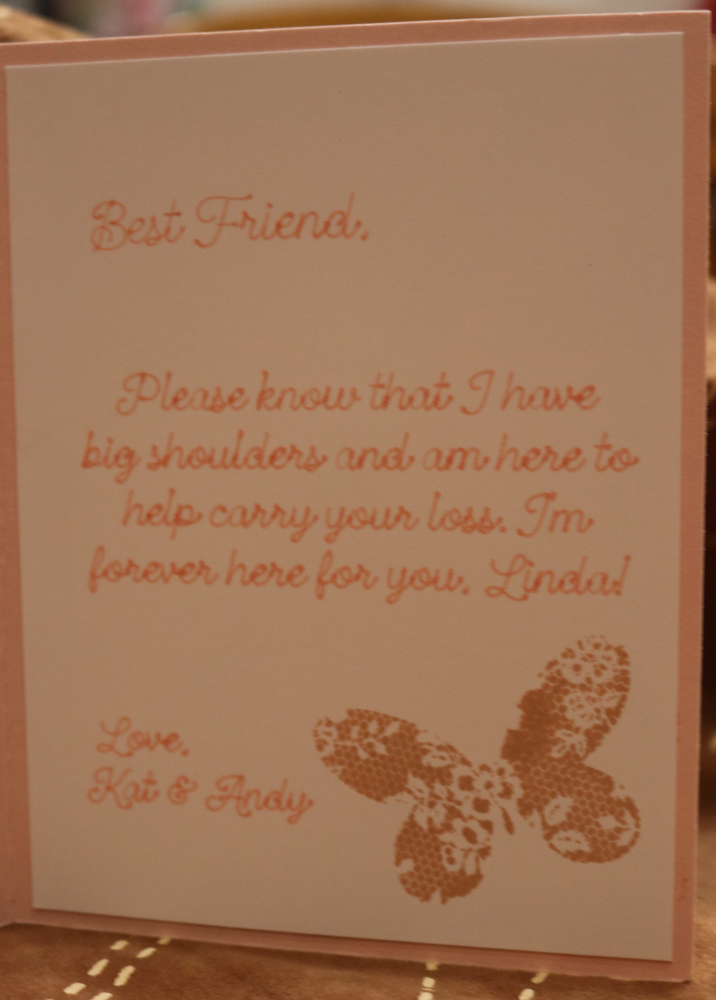 Best Friend,
Please know that I have
big shoulders and am here to
help carry your loss. I'm
forever here for you, Linda!
Love,
Kat & Andy